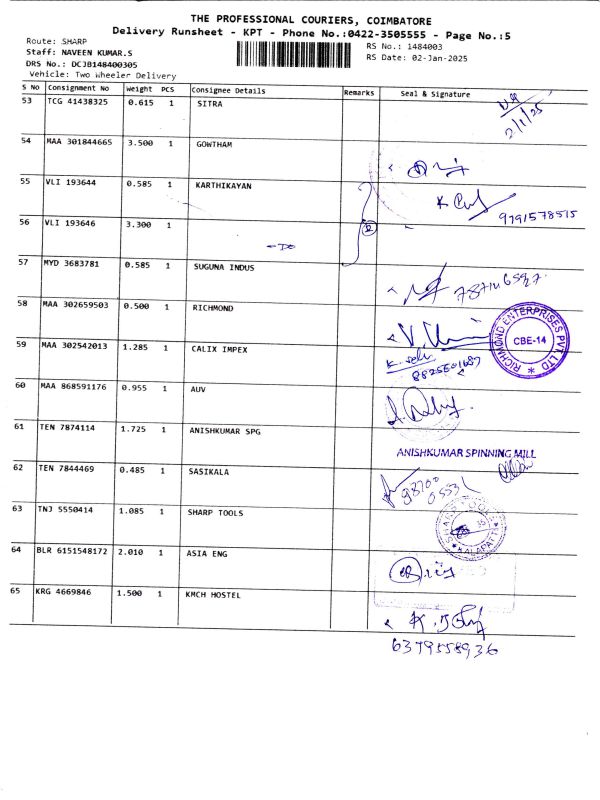 THE PROFESSIONAL COURIERS, COIMBATORE
Delivery Runsheet - KPT - Phone No.:0422-3505555 - Page No.:5
Route: SHARP
RS No.: 1484003
Staff: NAVEEN KUMAR.S
RS Date: 02-Jan-2025
DRS No.: DCJB148400305
Vehicle: Two Wheeler Delivery
S No Consignment No Weight PCS Consignee Details Remarks Seal & Signature
53 TCG 41438325 0.615 1 SITRA
2/1/25
54 MAA 301844665 3.500 1 GOWTHAM
55 VLI 193644 0.585 1 KARTHIKAYAN
9791578515
56 VLI 193646 3.300 1
- DO
57 MYD 3683781 0.585 1 SUGUNA INDUS
58 MAA 302659503 0.500 1 RICHMOND
RICHMOND ENTERPRISES PVT LTD
CBE-14
59 MAA 302542013 1.285 1 CALIX IMPEX
60 MAA 868591176 0.955 1 AUV
61 TEN 7874114 1.725 1 ANISHKUMAR SPG
ANISHKUMAR SPINNING MILL
62 TEN 7844469 0.485 1 SASIKALA
63 TNJ 5550414 1.085 1 SHARP TOOLS
64 BLR 6151548172 2.010 1 ASIA ENG
65 KRG 4669846 1.500 1 KMCH HOSTEL
6379558936